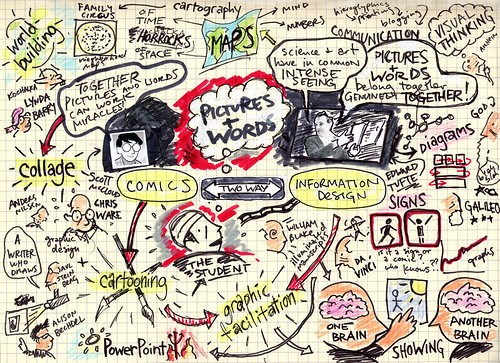 world-
building
FAMILY
CIRCUS
neighborhood
maps
OF
TIME
HORROCKS
OF
SPACE
cartography
MAPS
MIND
NUMBERS
hieroglyphics
blogging
COMMUNICATION
VISUAL
THINKING
KOCHALKA
LYNDA
BARRY
TOGETHER
PICTURES AND WORDS
CAN WORK
MIRACLES!
PICTURES
+
WORDS
Science + art
have in common
INTENSE
SEEING
PICTURES
+ WORDS
belong together
GENUINELY TOGETHER!
GOD
DIAGRAMS
collage
SCOTT
McCLOUD
COMICS
TWO WAY
INFORMATION
DESIGN
EDWARD
TUFTE
SIGNS
GALILEO
ANDERS
NILSEN
CHRIS
WARE
graphic
design
A
WRITER
WHO
DRAWS
SAUL
STEIN
BERG
THE
STUDENT
WILLIAM
BLAKE
illuminated
manuscripts
DA
VINCI
is it a sign or
a comic?
who knows??
graphs
cartooning
graphic
facilitation
ALISON
BECHDEL
PowerPoint
ONE
BRAIN
SHOWING
ANOTHER
BRAIN